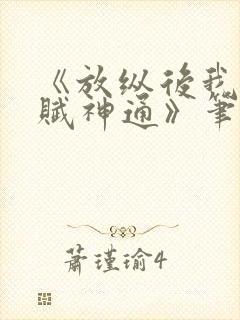 《放纵後我
賦神通》筆
蕭瑾瑜4